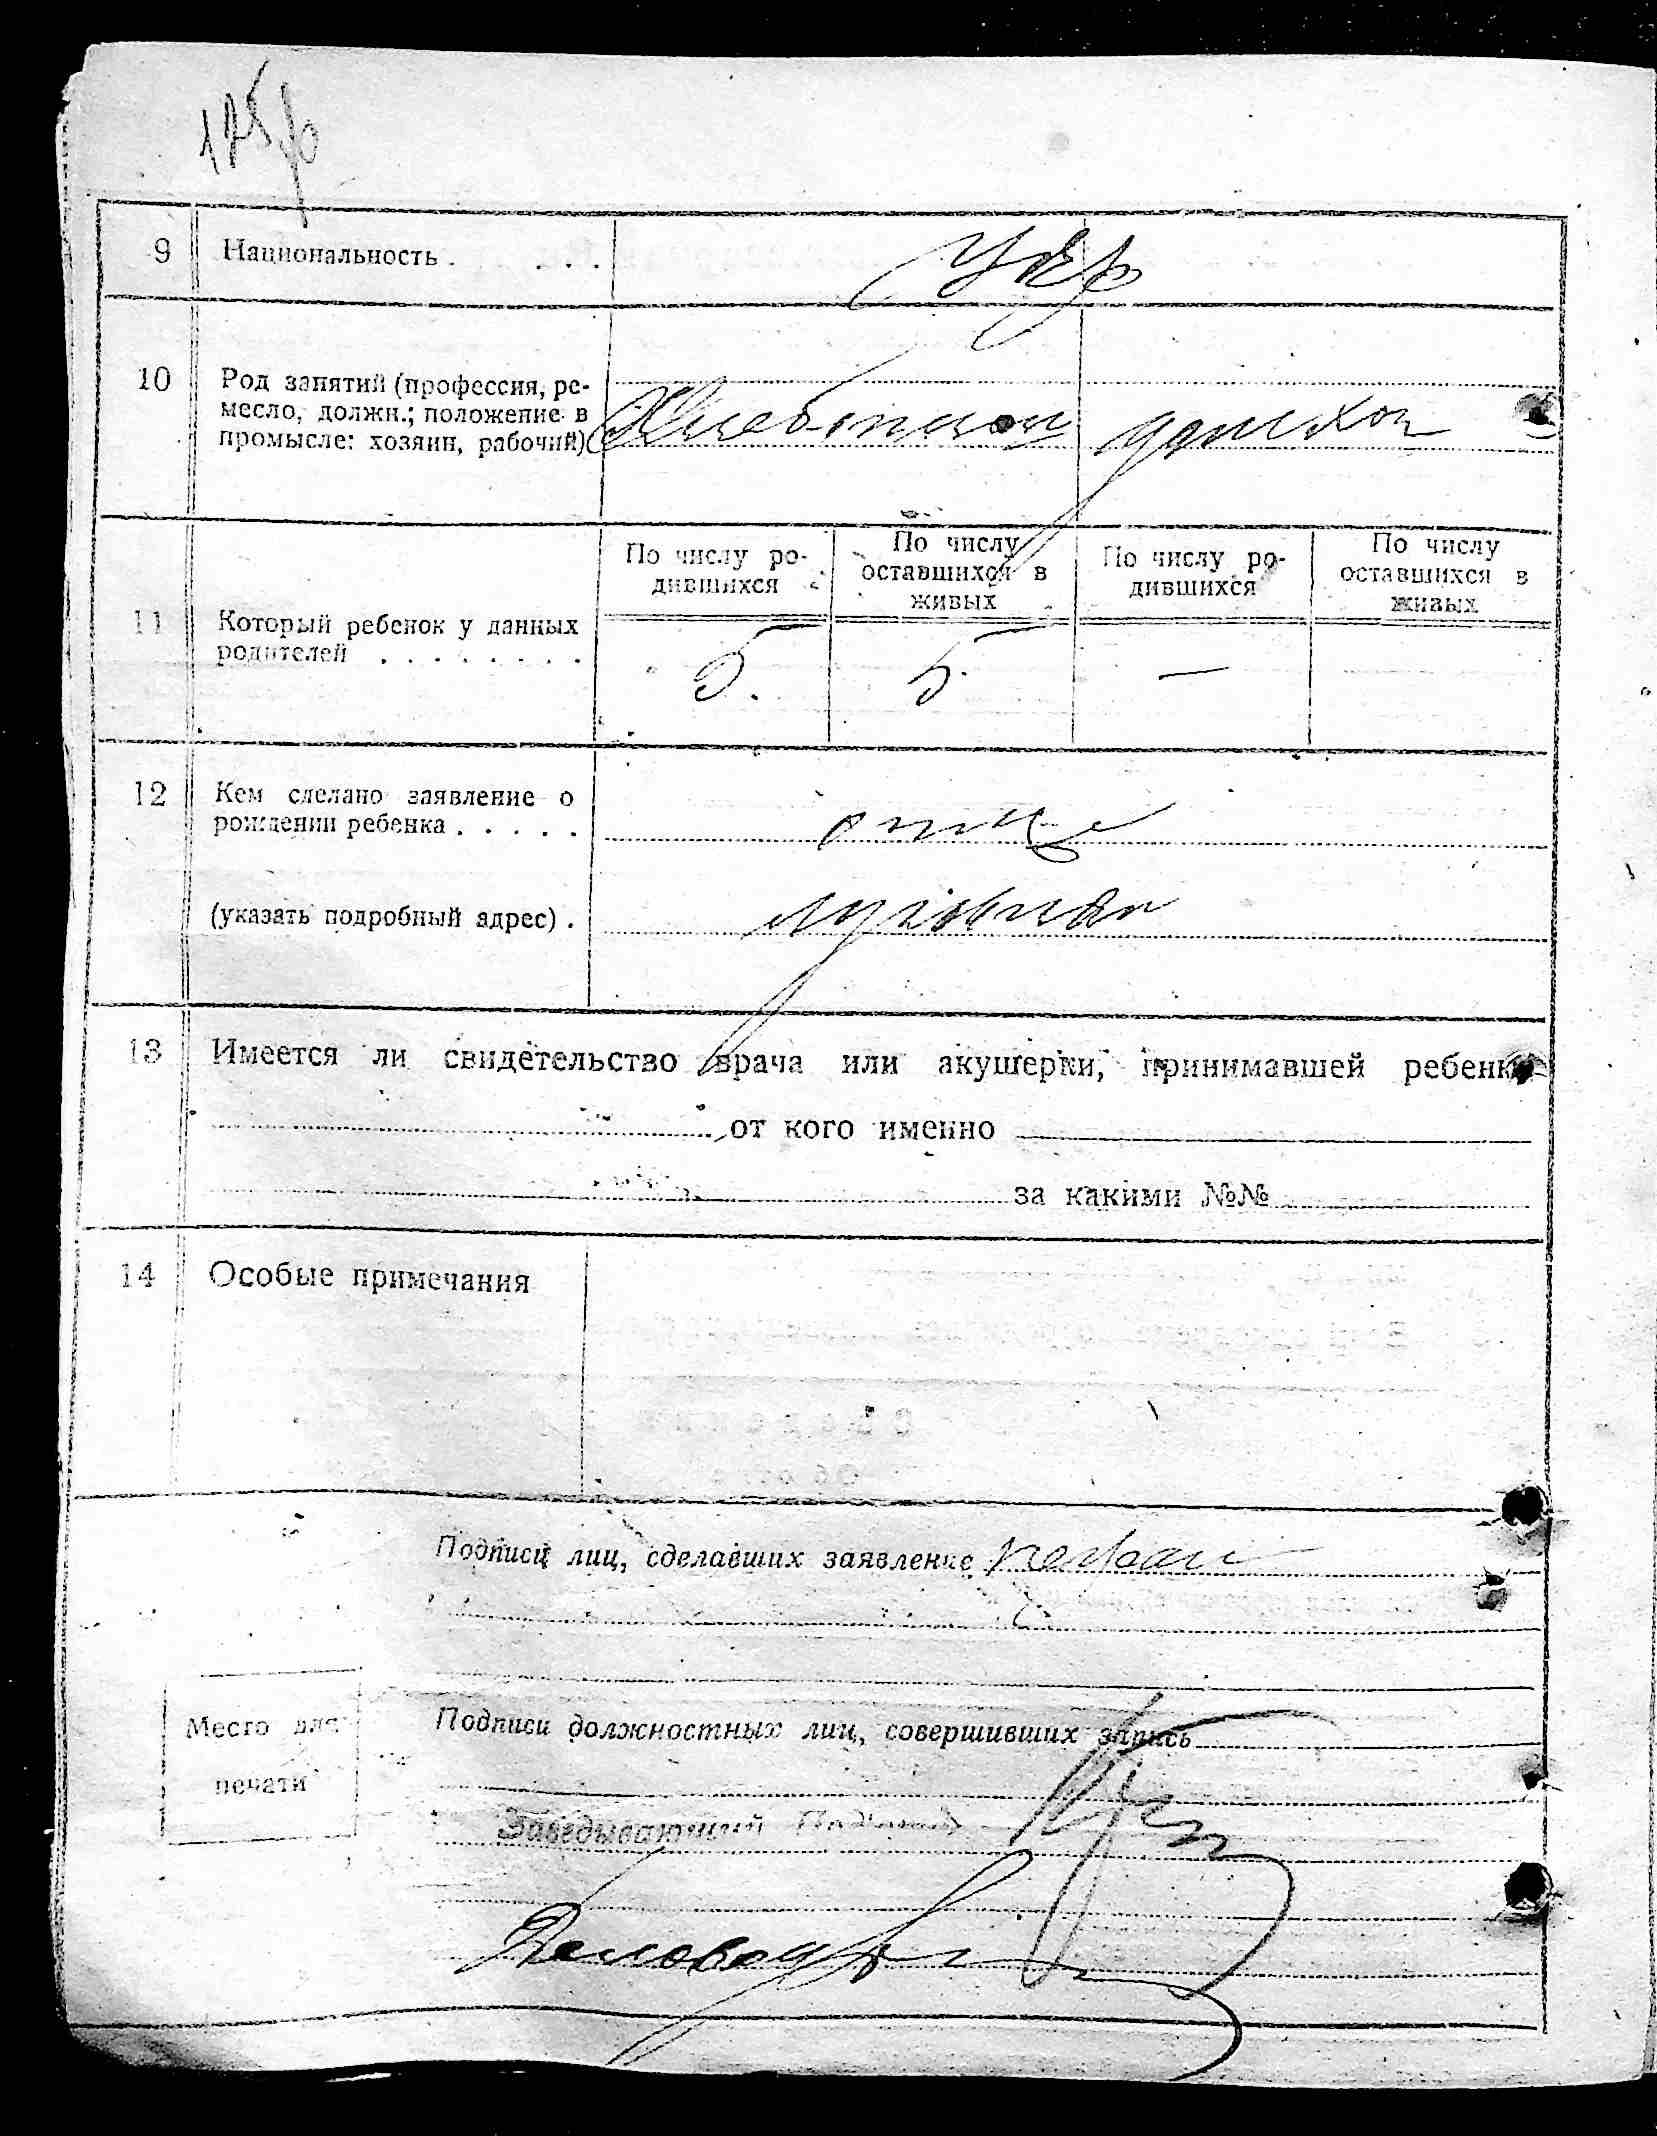 9 Национальность . . . . Укр
10 Род занятий (профессия, ре-
месло, должн.; положение в
промысле: хозяин, рабочий) Хлебопашец домхоз
11 Который ребенок у данных
родителей . . . . . . . .
По числу ро-
дившихся
По числу
оставшихся в
живых
По числу ро-
дившихся
По числу
оставшихся в
живых
5. 5. —
12 Кем сделано заявление о
рождении ребенка . . . . . отце
(указать подробный адрес) .
13 Имеется ли свидетельство врача или акушерки, принимавшей ребенка
от кого именно
за какими №№
14 Особые примечания
Подписи лиц, сделавших заявление
Место для
печати
Подписи должностных лиц, совершивших запись
Заведывающий